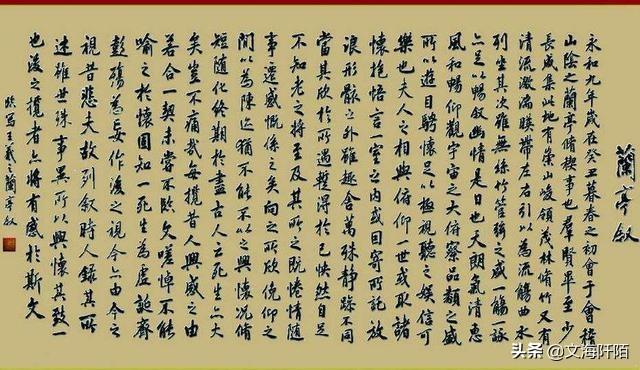 蘭亭敘
永和九年歲在癸丑暮春之初會于會稽
山陰之蘭亭脩禊事也羣賢畢至少
長咸集此地有崇山峻領茂林脩竹又有
清流激湍暎帶左右引以為流觴曲水
列坐其次雖無絲竹管絃之盛一觴一詠
亦足以暢敘幽情是日也天朗氣清惠
風和暢仰觀宇宙之大俯察品類之盛
所以遊目騁懷足以極視聽之娛信可
樂也夫人之相與俯仰一世或取諸
懷抱悟言一室之內或因寄所託放
浪形骸之外雖趣舍萬殊靜躁不同
當其欣於所遇蹔得於己怏然自足
不知老之將至及其所之既惓情隨
事遷感慨係之矣向之所欣俛仰之
間以為陳迹猶不能不以之興懷況脩
短隨化終期於盡古人云死生亦大
矣豈不痛哉每攬昔人興感之由
若合一契未嘗不臨文嗟悼不能
喻之於懷固知一死生為虛誕齊
彭殤為妄作後之視今亦由今之
視昔悲夫故列敘時人錄其所
述雖世殊事異所以興懷其致一
也後之攬者亦將有感於斯文
臨寫王羲之蘭亭敘
头条 @文海阡陌